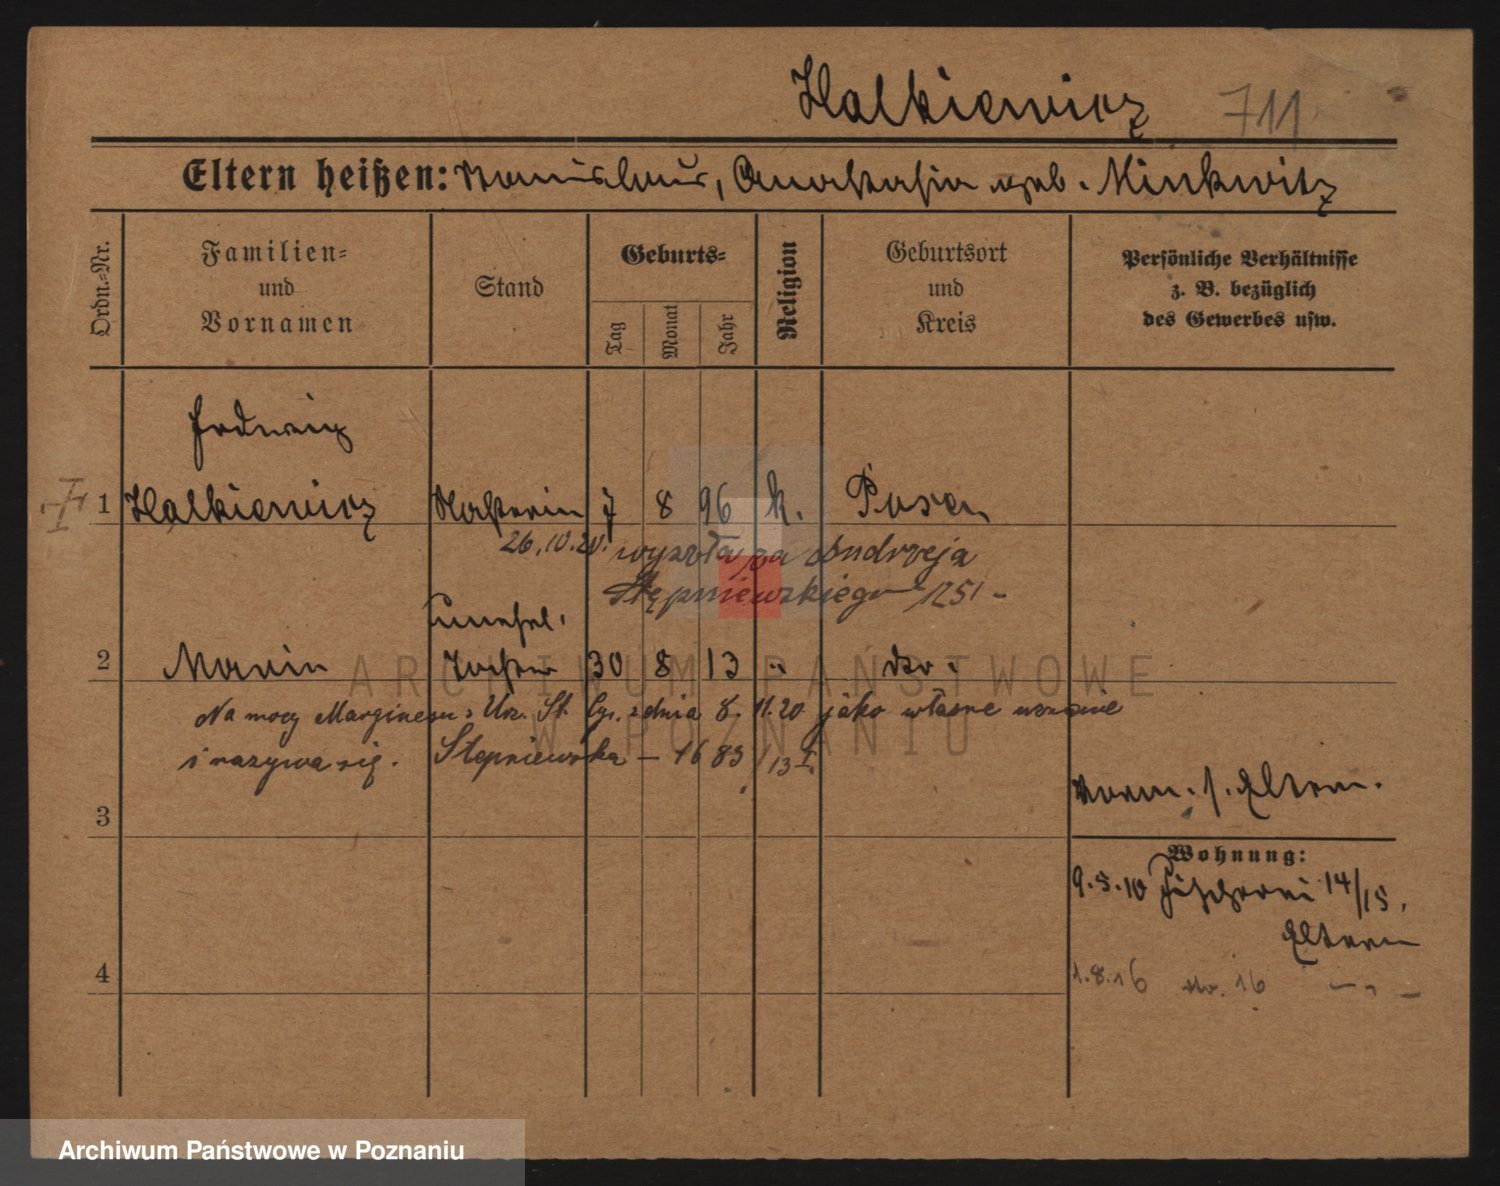 Halkiewicz 711
Eltern heißen: Stanislaus, Anastasia geb. Minkwitz
Ordn.-Nr.
Familien- und Vornamen
Stand
Geburts-
Tag
Monat
Jahr
Religion
Geburtsort und Kreis
Persönliche Verhältnisse z. B. bezüglich des Gewerbes usw.
Hedwig
1 Halkiewicz 7 8 96 k. Posen
26.10.20. wyszła za Andrzeja
Stępniewskiego 1251 -
unehel.
2 Maria Tochter 30 8 13 " dto.
Na mocy Marginesu z Urz. St. Cyw. z dnia 8. 11. 20 jako własne uznanie
i nazywa się. Stępniewska - 1683/13 I.
Vorm. s. Eltern.
3
Wohnung:
9.5.10 Fischerei 14/15.
Eltern
4
1.8.16 dto. 16 - " -
ARCHIWUM PAŃSTWOWE
W POZNANIU
Archiwum Państwowe w Poznaniu